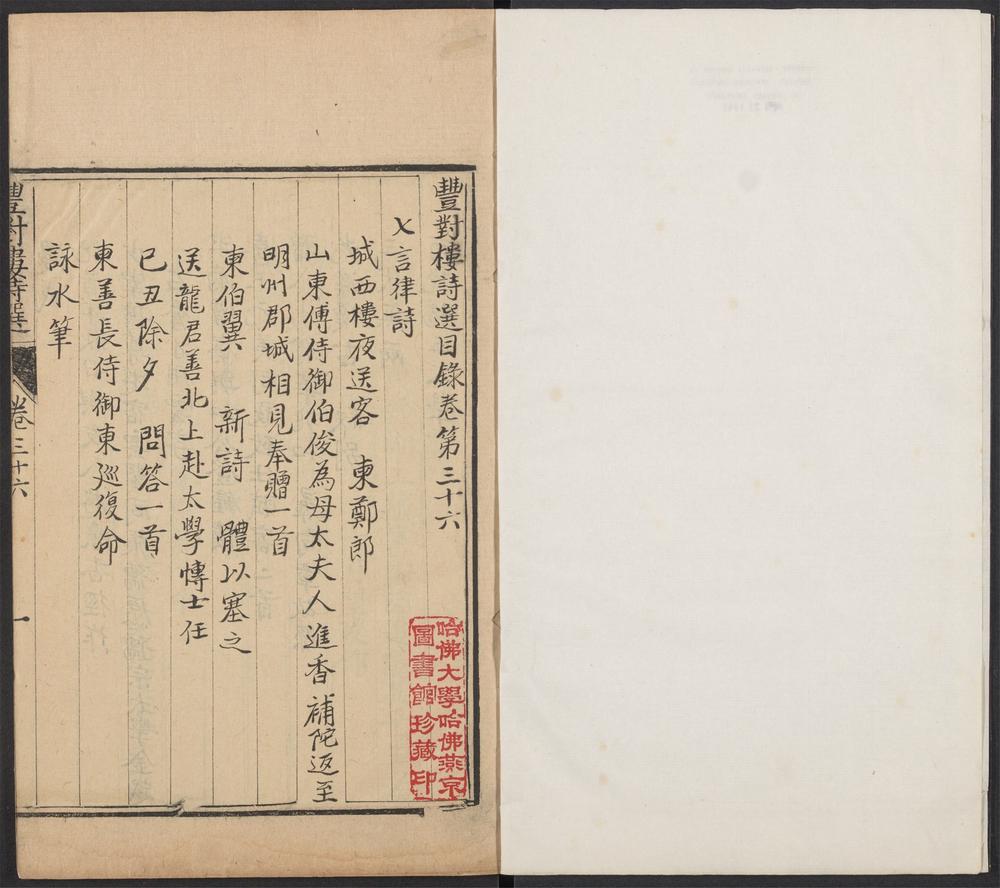 豐對樓詩選目錄卷第三十六
七言律詩
城西樓夜送客　東鄭郎
山東傅侍御伯俊為母太夫人進香補陀返至
明州郡城相見奉贈一首
東伯翼　新詩　體以塞之
送龍君善北上赴太學博士任
已丑除夕　問答一首
東善長侍御東巡復命
詠水筆
豐對樓詩選　卷三十六　一
哈佛大學哈佛燕京
圖書館珍藏印